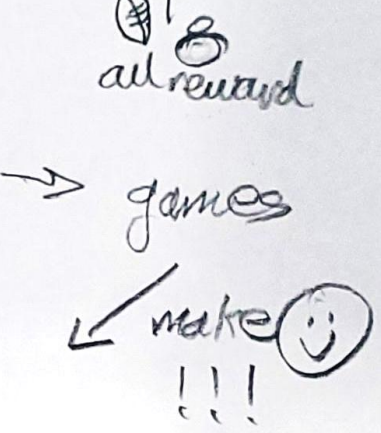 all reward
games
make
!!!